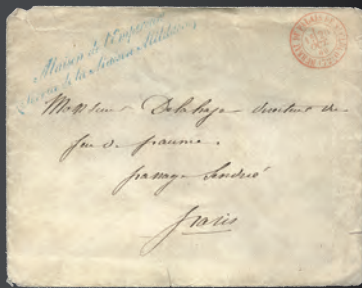 Maison de l'Empereur
Service de la Maison Militaire
Monsieur Delahaye directeur du
jeu de paume.
passage Sandrié
Paris